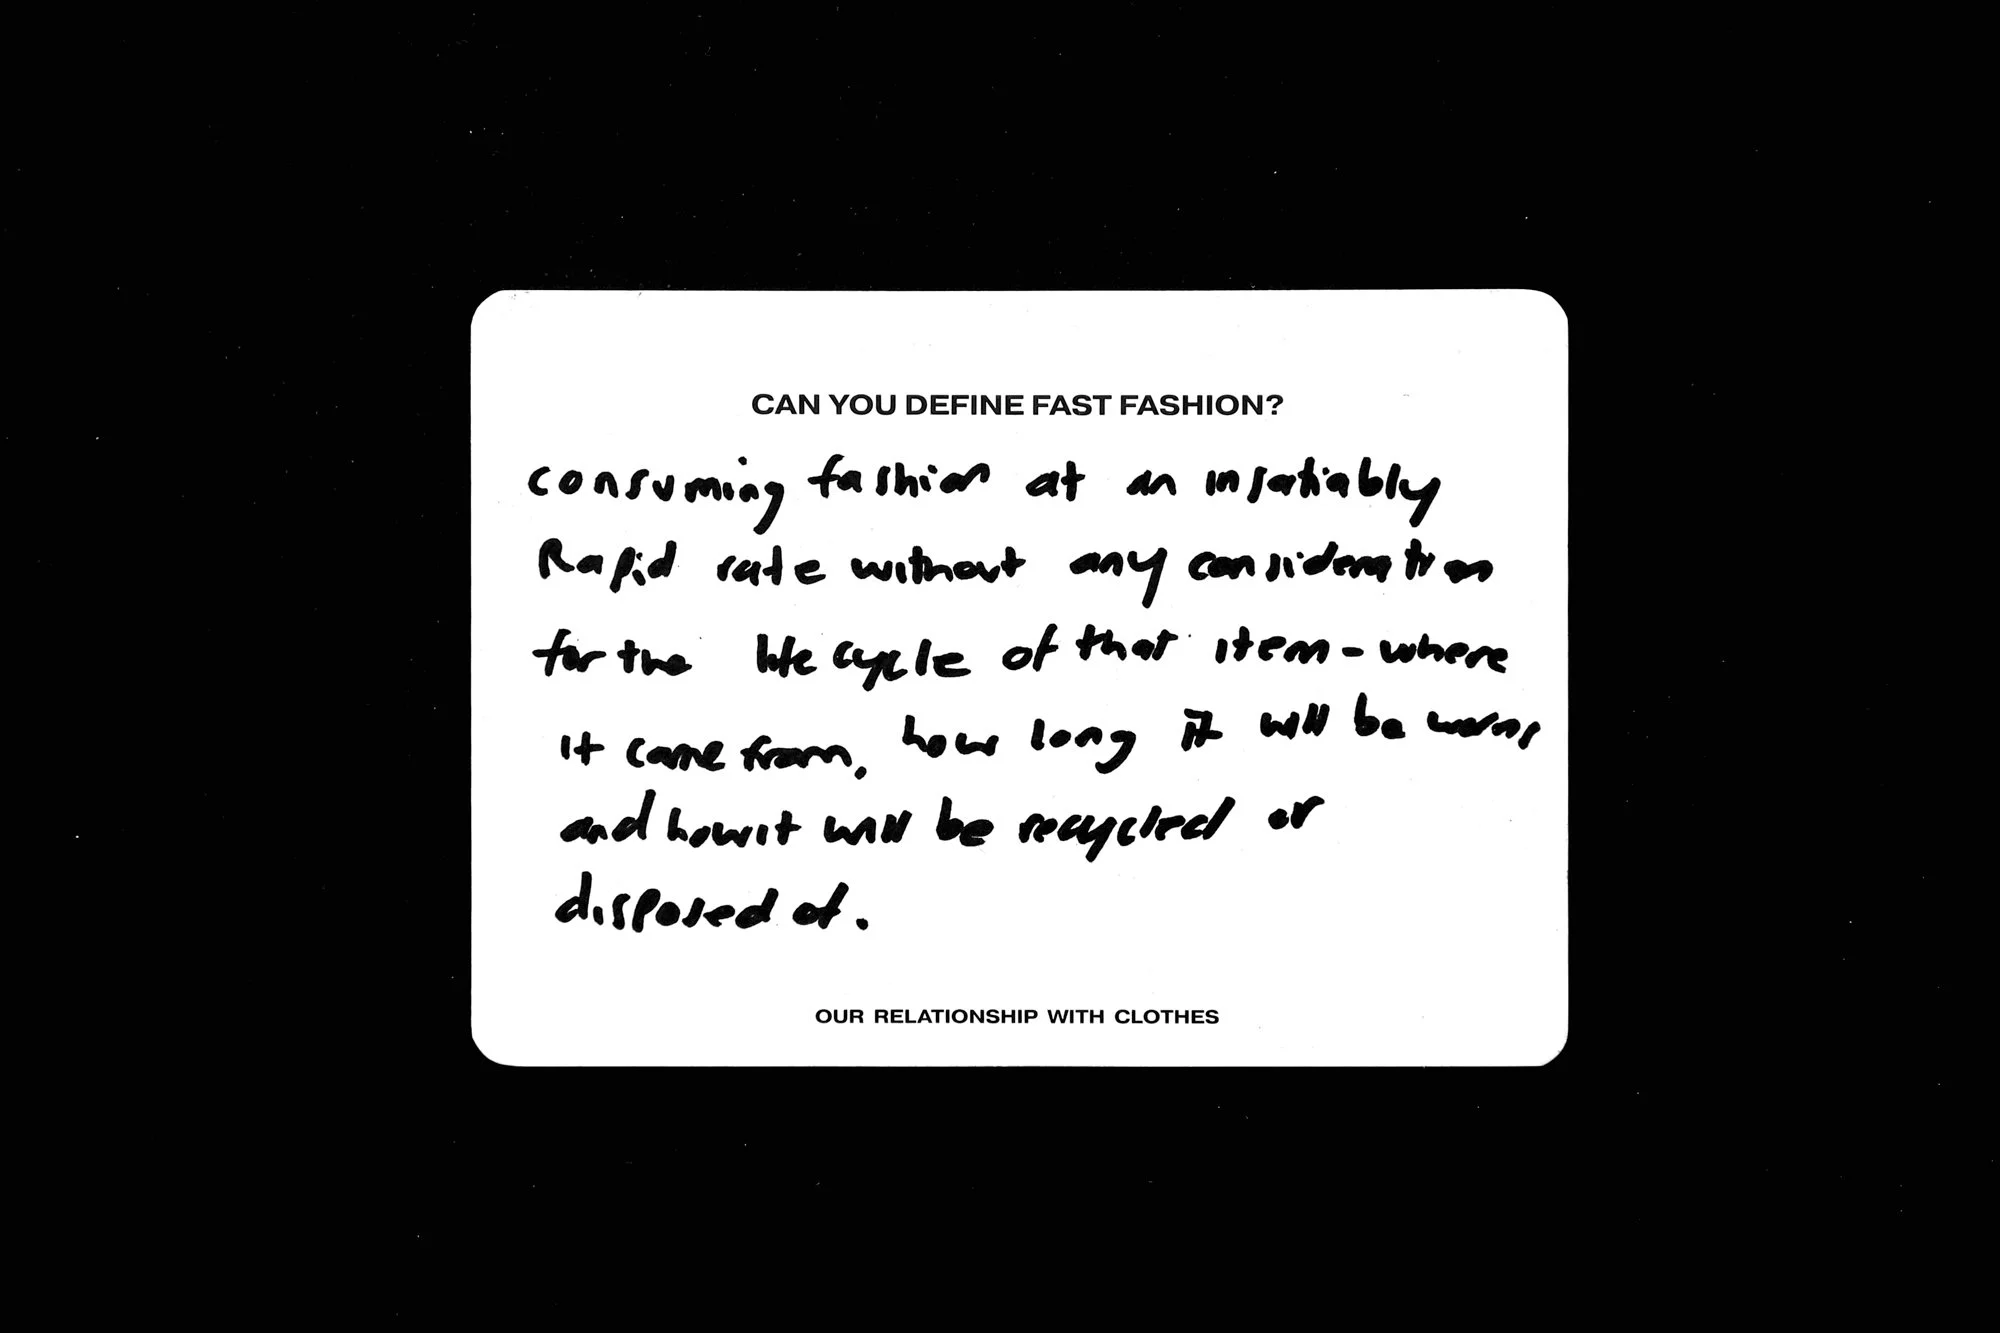 CAN YOU DEFINE FAST FASHION?
consuming fashion at an insatiably
Rapid rate without any consideration
for the life cycle of that item - where
it came from, how long it will be worn,
and how it will be recycled or
disposed of.
OUR RELATIONSHIP WITH CLOTHES